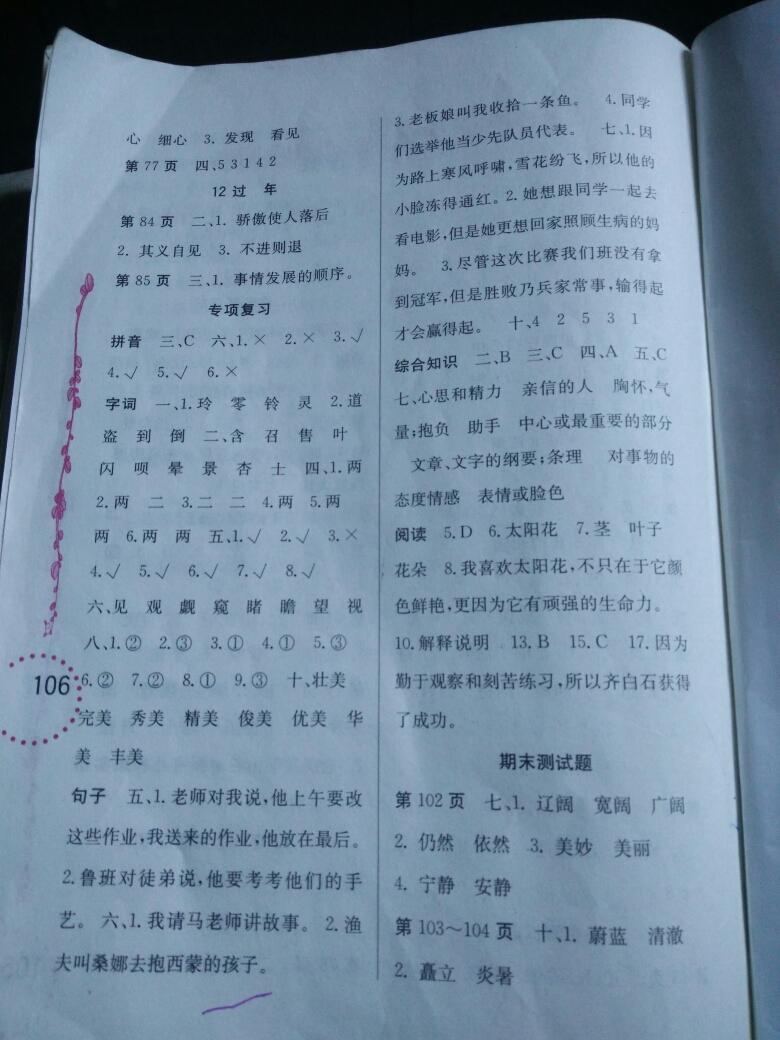 心 细心 3. 发现 看见
第77页 四、5 3 1 4 2
12 过 年
第84页 二、1. 骄傲使人落后
2. 其义自见 3. 不进则退
第85页 三、1. 事情发展的顺序。
专项复习
拼音 三、C 六、1.× 2.× 3.√
4.√ 5.√ 6.×
字词 一、1.玲 零 铃 灵 2.道
盗 到 倒 二、含 召 售 叶
闪 呗 晕 景 杏 士 四、1.两
2.两 二 3.二 二 4.两 5.两
两 6.两 两 五、1.√ 2.√ 3.×
4.√ 5.√ 6.√ 7.√ 8.√
六、见 观 觑 窥 睹 瞻 望 视
八、1.② 2.③ 3.① 4.① 5.③
6.② 7.② 8.① 9.③ 十、壮美
完美 秀美 精美 俊美 优美 华
美 丰美
句子 五、1.老师对我说,他上午要改
这些作业,我送来的作业,他放在最后。
2.鲁班对徒弟说,他要考考他们的手
艺。 六、1.我请马老师讲故事。 2.渔
夫叫桑娜去抱西蒙的孩子。
106
3.老板娘叫我收拾一条鱼。 4.同学
们选举他当少先队员代表。 七、1.因
为路上寒风呼啸,雪花纷飞,所以他的
小脸冻得通红。2.她想跟同学一起去
看电影,但是她更想回家照顾生病的妈
妈。 3.尽管这次比赛我们班没有拿
到冠军,但是胜败乃兵家常事,输得起
才会赢得起。 十、4 2 5 3 1
综合知识 二、B 三、C 四、A 五、C
七、心思和精力 亲信的人 胸怀,气
量;抱负 助手 中心或最重要的部分
文章、文字的纲要;条理 对事物的
态度情感 表情或脸色
阅读 5.D 6.太阳花 7.茎 叶子
花朵 8.我喜欢太阳花,不只在于它颜
色鲜艳,更因为它有顽强的生命力。
10.解释说明 13.B 15.C 17.因为
勤于观察和刻苦练习,所以齐白石获得
了成功。
期末测试题
第102页 七、1. 辽阔 宽阔 广阔
2. 仍然 依然 3. 美妙 美丽
4. 宁静 安静
第103~104页 十、1. 蔚蓝 清澈
2. 矗立 炎暑